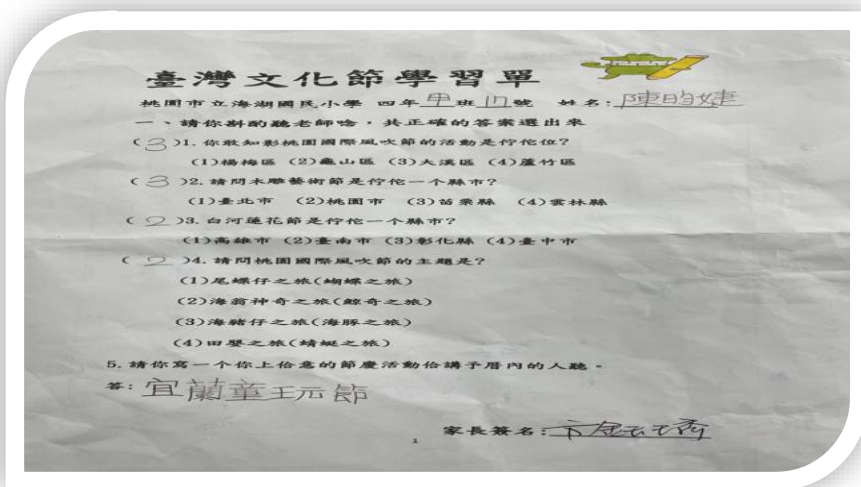 臺灣文化節學習單
桃園市立海湖國民小學 四年甲班17號 姓名:陳昀婕
一、請你斟酌聽老師唸,共正確的答案選出來
(3)1. 你敢知影桃園國際風吹節的活動是佇佗位?
(1)楊梅區 (2)龜山區 (3)大溪區 (4)蘆竹區
(3)2. 請問木雕藝術節是佇佗一个縣市?
(1)臺北市 (2)桃園市 (3)苗栗縣 (4)雲林縣
(2)3. 白河蓮花節是佇佗一个縣市?
(1)高雄市 (2)臺南市 (3)彰化縣 (4)臺中市
(2)4. 請問桃園國際風吹節的主題是?
(1)尾蝶仔之旅(蝴蝶之旅)
(2)海翁神奇之旅(鯨奇之旅)
(3)海豬仔之旅(海豚之旅)
(4)田嬰之旅(蜻蜓之旅)
5. 請你寫一个你上佮意的節慶活動佮講予厝內的人聽。
答:宜蘭童玩節
家長簽名:
1